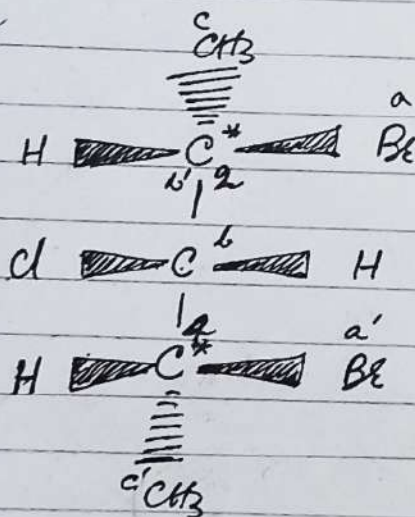 c
CH3
a
H C* Br
b' 2
Cl C b H
4 a'
H C* Br
c' CH3